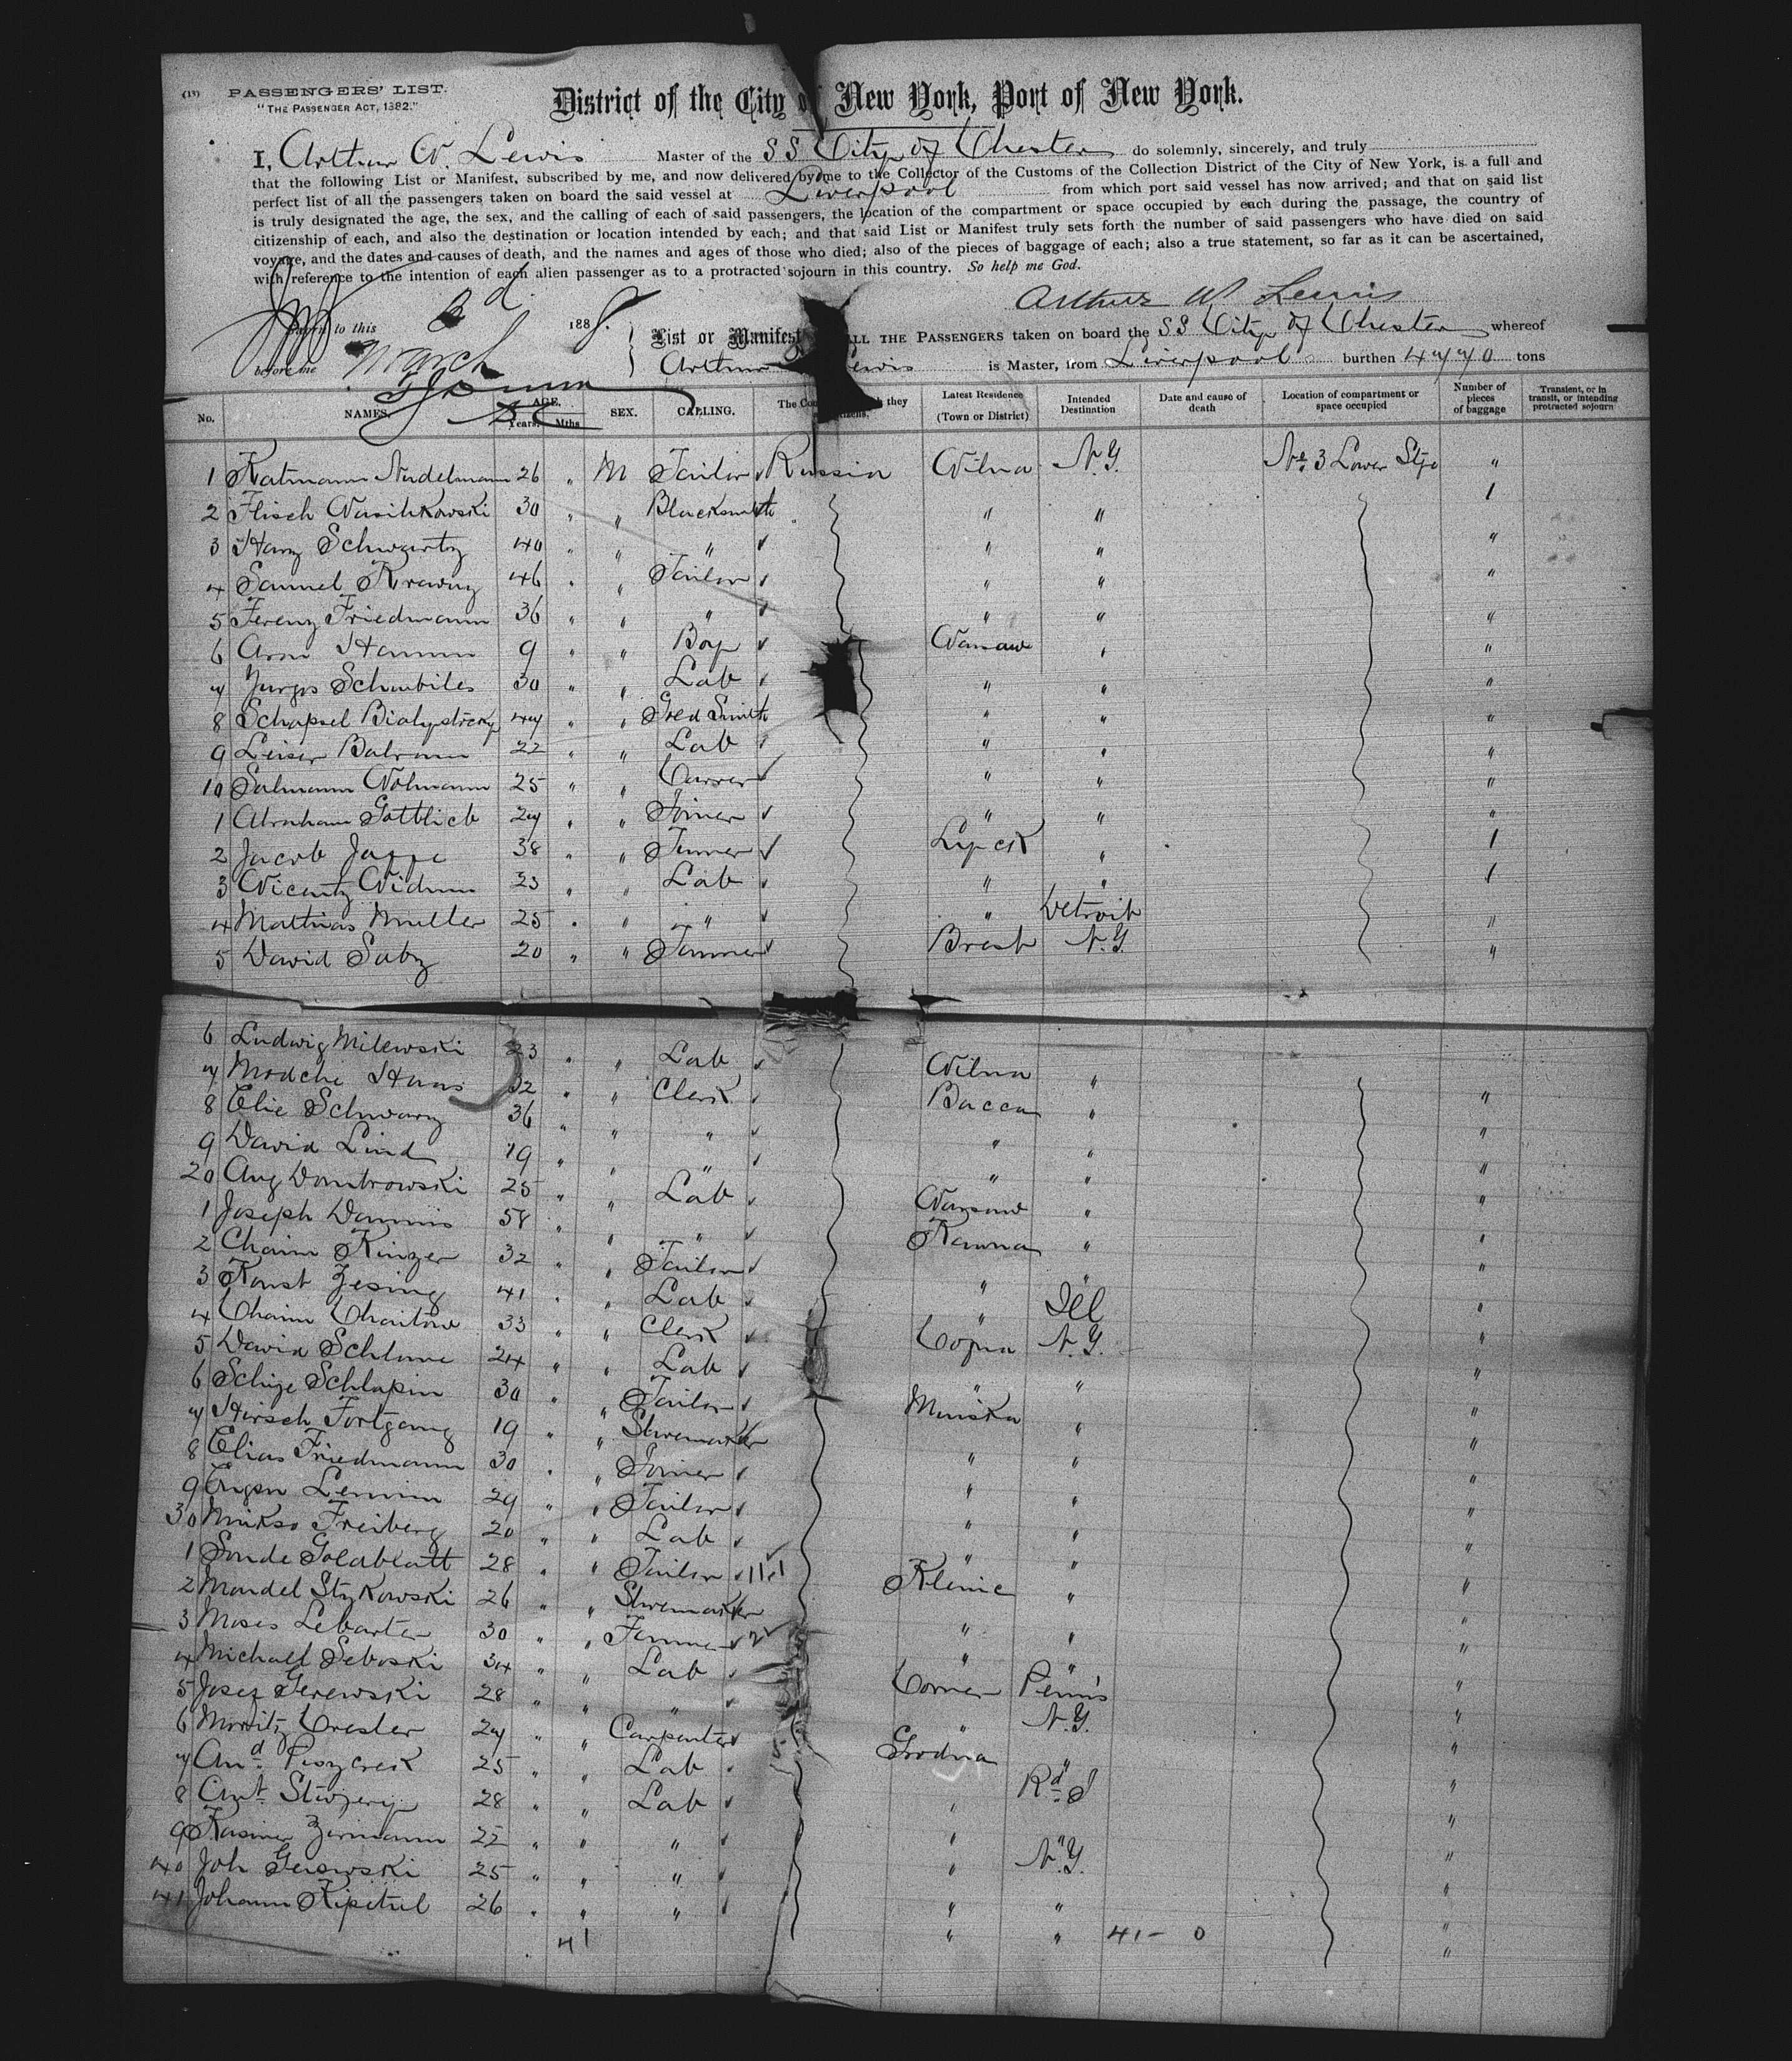 (13) PASSENGERS' LIST.
"THE PASSENGER ACT, 1882."
District of the City of New York, Port of New York.
I, Arthur W. Lewis Master of the SS City of Chester do solemnly, sincerely, and truly
that the following List or Manifest, subscribed by me, and now delivered by me to the Collector of the Customs of the Collection District of the City of New York, is a full and
perfect list of all the passengers taken on board the said vessel at Liverpool from which port said vessel has now arrived; and that on said list
is truly designated the age, the sex, and the calling of each of said passengers, the location of the compartment or space occupied by each during the passage, the country of
citizenship of each, and also the destination or location intended by each; and that said List or Manifest truly sets forth the number of said passengers who have died on said
voyage, and the dates and causes of death, and the names and ages of those who died; also of the pieces of baggage of each; also a true statement, so far as it can be ascertained,
with reference to the intention of each alien passenger as to a protracted sojourn in this country. So help me God.
Arthur W Lewis
to this 2d 1888.
before me March
List or Manifest ALL THE PASSENGERS taken on board the SS City of Chester whereof
Arthur Lewis is Master, from Liverpool burthen 4770 tons
No. NAMES. AGE. Years. Mths. SEX. CALLING. The they Latest Residence (Town or District) Intended Destination Date and cause of death Location of compartment or space occupied Number of pieces of baggage Transient, or in transit, or intending protracted sojourn
1 Katmann Nudelmann 26 " M Tailor Russia Wilna N.Y. No. 3 Lower Stge "
2 Flisch Wasilkowski 30 " " Blacksmith " " 1
3 Harry Schwartz 40 " " " " " "
4 Samuel Krawny 46 " " Tailor " " "
5 Ferenz Friedmann 36 " " " " " "
6 Aron Hamm 9 " " Boy Warsaw " "
7 Jurgis Schubiles 30 " " Lab " " "
8 Schapsel Bialystocky 47 " " Smith " " "
9 Leiser Balram 22 " " Lab " " "
10 Salmann Wolmann 25 " " Carver " " "
1 Abraham Gottlieb 27 " " Joiner " " "
2 Jacob Jaffe 38 " " Tanner Lyck " 1
3 Wicenty Widum 23 " " Lab " " 1
4 Mathias Muller 25 " " " " Detroit "
5 David Saby 20 " " Tanner Brest N.Y. "
6 Ludwig Milewski 23 " " Lab Wilna "
7 Modche Haas 32 " " Clerk Bacca " "
8 Elie Schwarz 36 " " " " " "
9 David Lind 19 " " " " " "
20 Aug Dombrowski 25 " " Lab Warsaw " "
1 Joseph Dammis 58 " " " Kowna " "
2 Chaim Kinzer 32 " " Tailor " " "
3 Konst Zesing 41 " " Lab " Ill "
4 Chaim Charitow 33 " " Clerk Copna N.Y. "
5 David Schlome 24 " " Lab " " "
6 Schije Schlapin 30 " " Tailor Minska " "
7 Hirsch Fortgang 19 " " Shoemaker " " "
8 Elias Friedmann 30 " " Joiner " " "
9 Lewin 29 " " Tailor " " "
30 Minkso Freiberg 20 " " Lab " " "
1 Sonde Goldblatt 28 " " Tailor Klenie " "
2 Mandel Stykowski 26 " " Shoemaker " " "
3 Moses Lebarter 30 " " " " "
4 Michall Seboski 34 " " Lab Corner Penns "
5 Josez Gerewski 28 " " " " N.Y. "
6 Moritz Cresler 27 " " Carpenter Grodna " "
7 And 25 " " Lab " Rd I "
8 Ant 28 " " Lab " " "
9 Kasimir Zirmann 22 " " " " N.Y. "
40 Joh Gerswski 25 " " " " " "
41 Johann Kipetul 26 " " " " " "
41 41 - 0